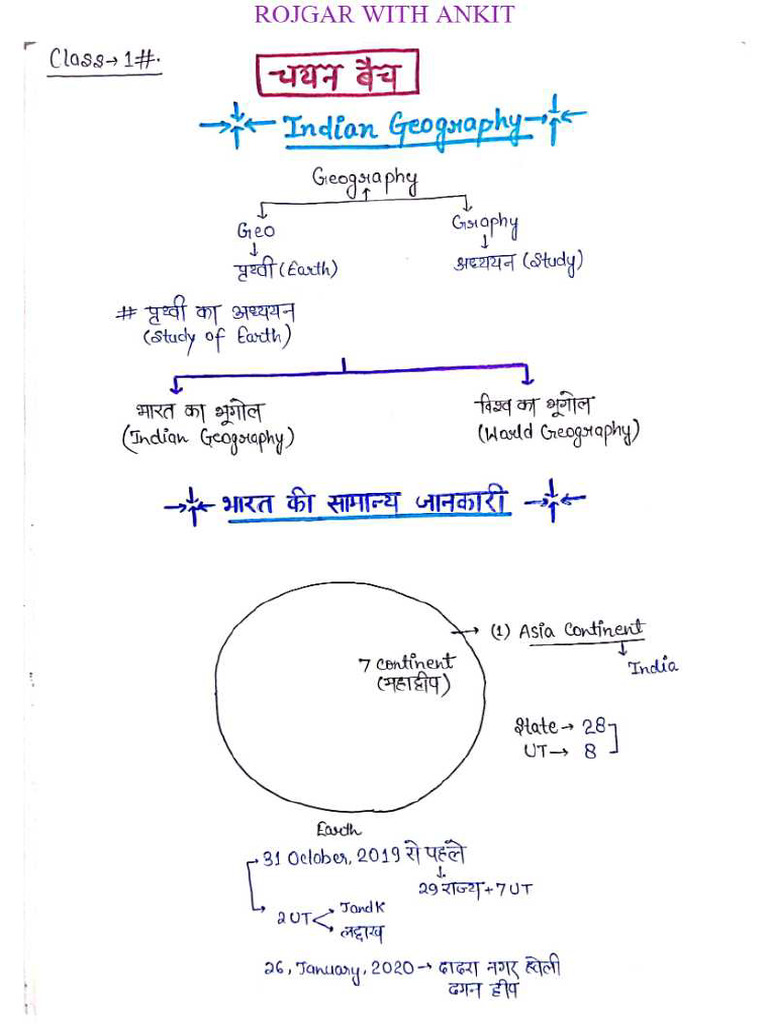 ROJGAR WITH ANKIT
Class→1#.
चयन बैच
Indian Geography
Geography
Geo Graphy
पृथ्वी (Earth) अध्ययन (Study)
# पृथ्वी का अध्ययन
(Study of Earth)
भारत का भूगोल विश्व का भूगोल
(Indian Geography) (World Geography)
भारत की सामान्य जानकारी
→ (1) Asia Continent
7 Continent
(महाद्वीप)
India
State → 28
UT → 8
Earth
31 October, 2019 से पहले
29 राज्य + 7 UT
2 UT
J and K
लद्दाख
26, January, 2020 → दादरा नगर हवेली
दमन द्वीप